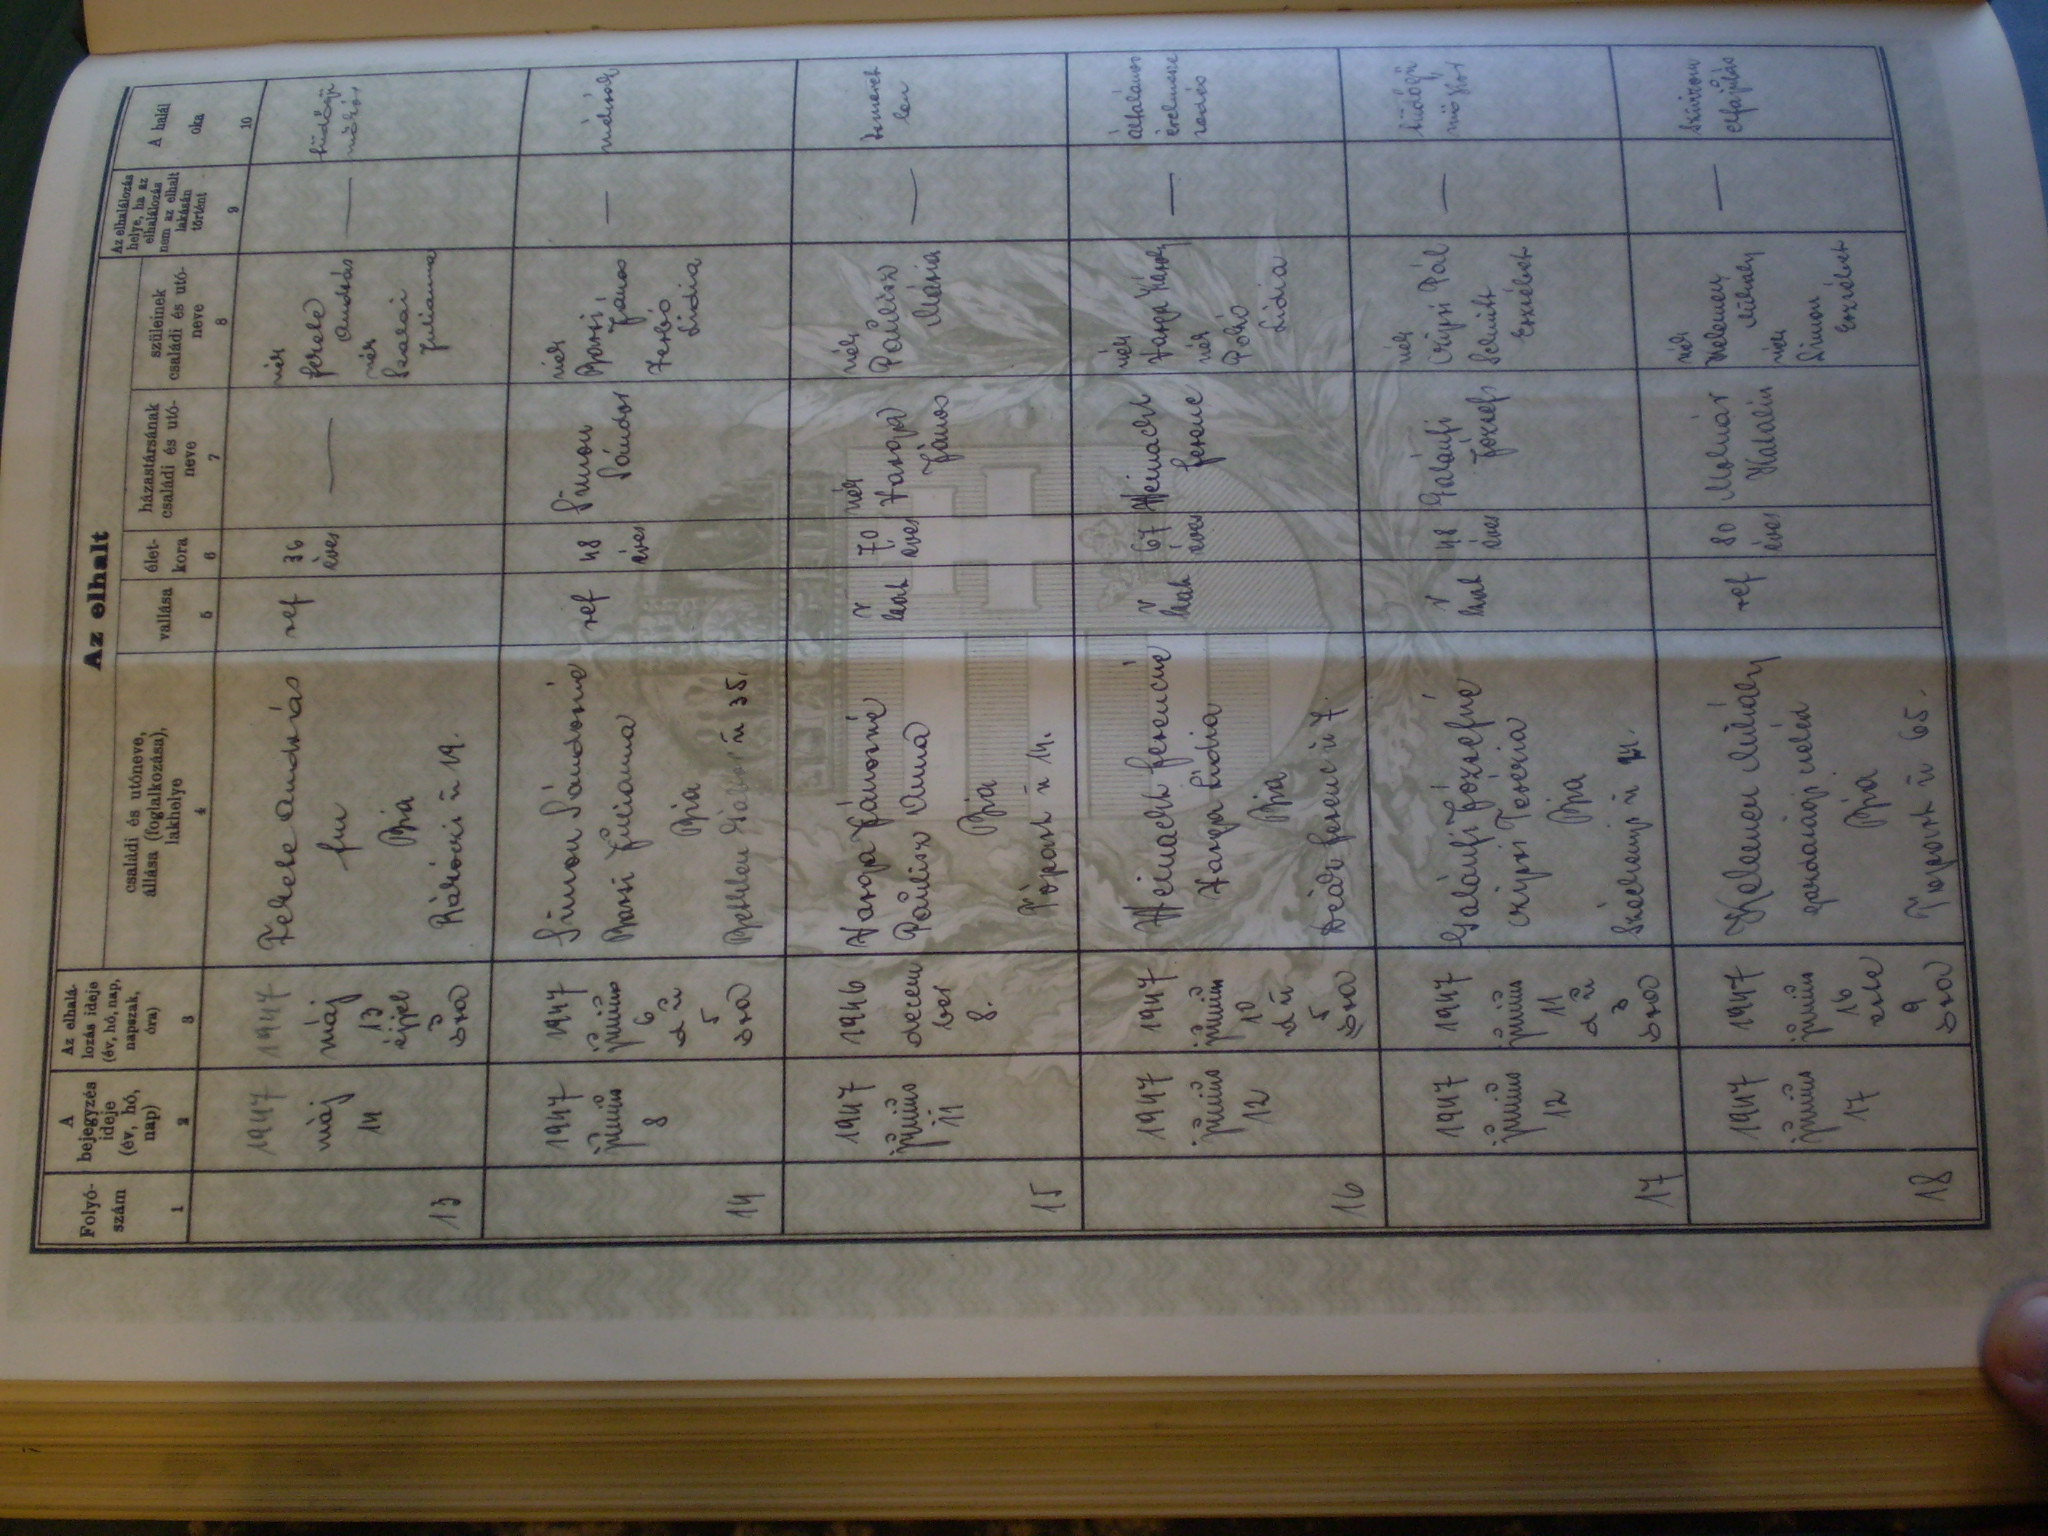 Az elhalt
Folyó-
szám
A
bejegyzés
ideje
(év, hó,
nap)
Az elhalá-
lozás ideje
(év, hó, nap,
napszak,
óra)
családi és utóneve,
állása (foglalkozása),
lakhelye
vallása
élet-
kora
házastársának
családi és utó-
neve
szüleinek
családi és utó-
neve
Az elhalálozás
helye, ha az
elhalálozás
nem az elhalt
lakásán
történt
A halál
oka
1
2
3
4
5
6
7
8
9
10
13
1947
máj
14
1947
máj
13
éjjel
3
óra
Fekete András
Bia
Rákóczi u 19.
ref
36
éves
—
néh
Fekete
András
néh
Szalai
Julianna
—
tüdőgü
mőkór
14
1947
június
8
1947
június
6
d u
5
óra
Simon Sándorné
Barsi Julianna
Bia
Bethlen Gábor u 35.
ref
48
éves
Simon
Sándor
néh
Barsi
János
Lidia
—
tüdővész
15
1947
június
11
1946
decem
ber
8.
Varga Jánosné
Paulisz Anna
Bia
Főpark u 14.
r
kath
70
éves
néh
Varga
János
néh
Paulisz
Mária
—
Ismeret
len
16
1947
június
12
1947
június
10
d u
5
óra
Weinacht Ferencné
Varga Lidia
Bia
Deák Ferenc u 7.
r
kath
67
éves
Weinacht
Ferenc
néh
Varga Károly
néh
Lidia
—
általános
érelmesze
sedés
17
1947
június
12
1947
június
11
d u
3
óra
Galánfi Józsefné
Teréz
Bia
Széchenyi u
r
kath
48
éves
Galánfi
József
néh
Pál
Schmidt
Erzsébet
—
tüdőgü
mő kór
18
1947
június
17
1947
június
16
este
9
óra
Kelemen Mihály
gazdasági
Bia
u 65.
ref
80
éves
Molnár
Katalin
néh
Kelemen
Mihály
néh
Simon
Erzsébet
—
Szívizom
elfajulás